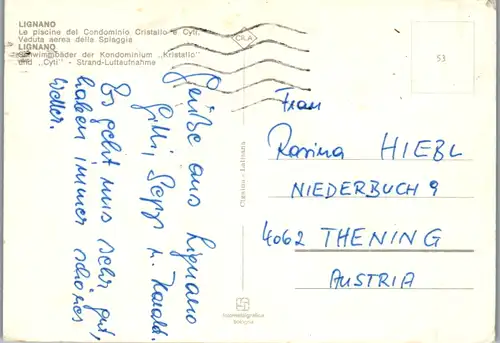 LIGNANO
Le piscine del Condominio Cristallo e Cyti,
Veduta aerea della Spiaggia
LIGNANO
Schwimmbäder der Kondominium „Kristallo"
und „Cyti" - Strand-Luftaufnahme
CILA
53
Grüße aus Lignano
Gitti, Sepp u. Harald.
Es geht uns sehr gut,
haben immer schönes
Wetter.
Frau
Rosina HIEBL
NIEDERBUCH 9
4062 THENING
AUSTRIA
- Latisana